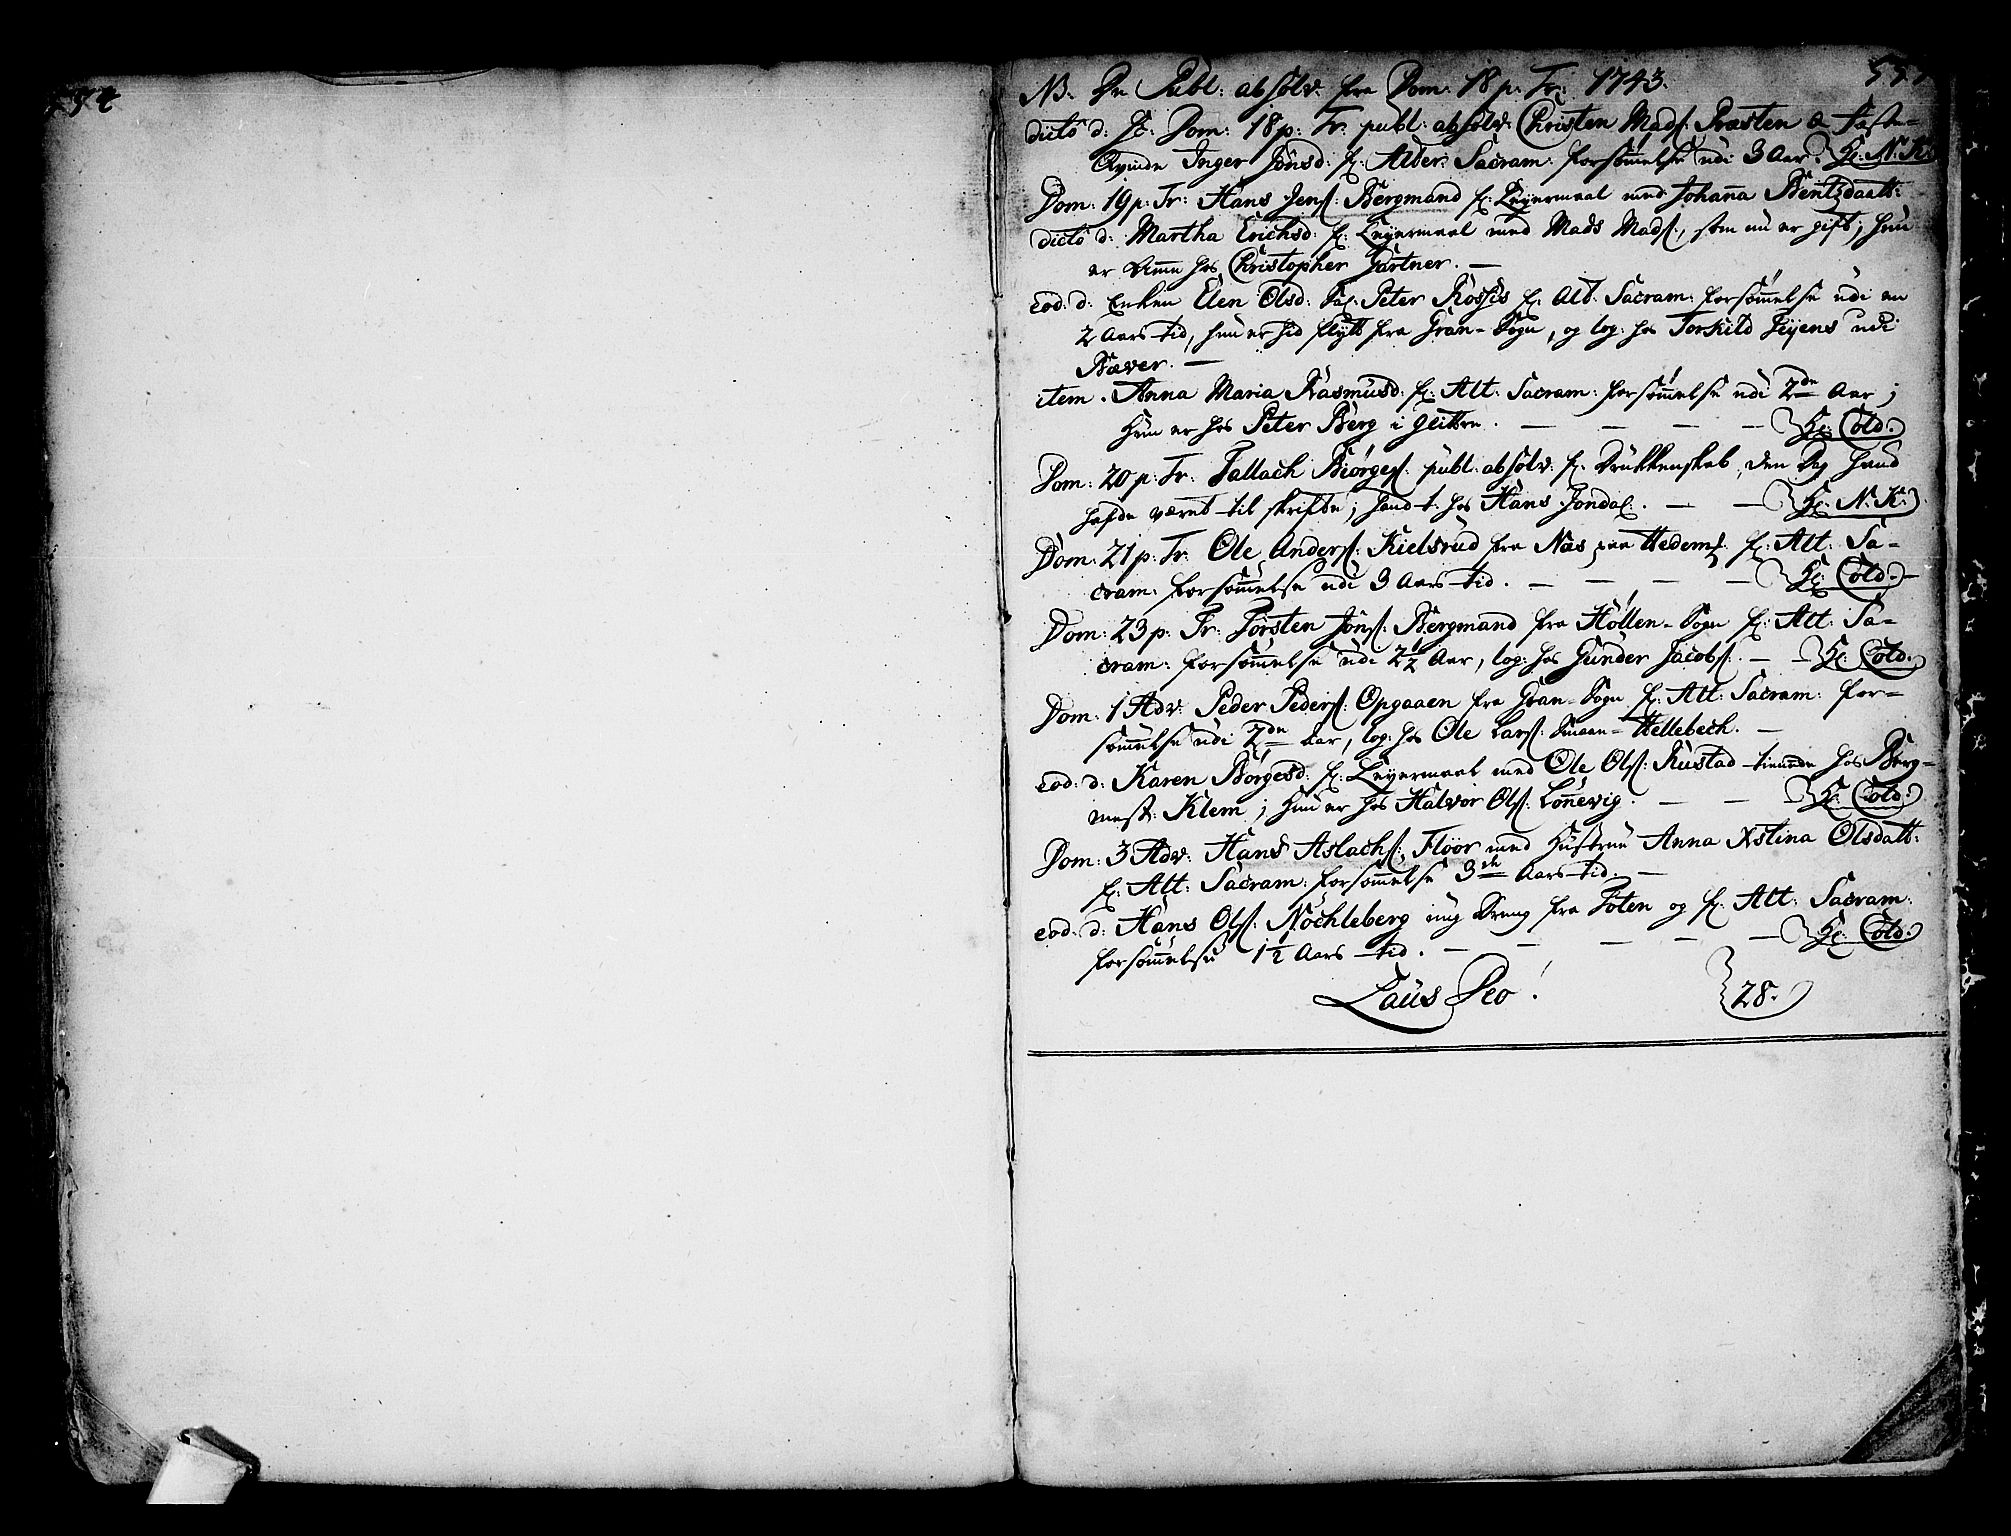 NB. De Publ: absolv: fra Dom: 18 p: Tr: 1743.
dicto d: Dom: 18 p: Tr: publ: absolv: Christen Mads: Præsten & Feste-
Qvinde Inger Jonsd: f: Alter: Sacram: forsømmelse udi 3 Aar. H: N: K:
Dom: 19 p: Tr: Hans Jens: Bergmand f: Leyermaal med Johanna Bentzdaatt:
dicto d: Martha Erichsd: f: Leyermaal med Mads Mads:, som nu er gift; hun
er Amme hos Christopher Gartner. —
eod: d: Enken Elen Olsd: Sal: Peter Rossis f: Alt: Sacram: forsømmelse udi en
2 Aars tid, hun er hid flytt fra Gran-Sogn, og log: hos Torkild Jyens udi
Bæver. —
item. Anna Maria Rasmusd: f: Alt: Sacram: forsømmelse udi 2de Aar;
hun er hos Peter Berg i Glitre. — — — — H: Cold:
Dom: 20 p: Tr: Tallach Biørges: publ: absolv: f: Drukkenskab, den Dag hand
hafde været til skrifte; hand t: hos Hans Jondal:. — — H: N: K:
Dom: 21 p: Tr: Ole Anders: Kielsrud fra Næs paa Hedem: f: Alt: Sa-
cram: forsømmelse udi 3 Aars tid. — — — — H: Cold:
Dom: 23 p: Tr: Torsten Jons: Bergmand fra Hollen-Sogn f: Alt: Sa-
cram: forsømmelse udi 2½ Aar, log: hos Gunder Jacobs:. — H: Cold:
Dom: 1 Adv: Peder Peders: Opgaaen fra Gran-Sogn f: Alt: Sacram: for-
sømmelse udi 2de Aar, log: hos Ole Lars: Hellebech. —
eod: d: Karen Børgesd: f: Leyermaal med Ole Ols: Rustad tienende hos Berg-
mest: Klem; hun er hos Halvor Ols: Lønnevig. — — H: Cold:
Dom: 3 Adv: Hans Aslachs: Floor med Hustrue Anna Xstina Olsdatt:
f: Alt: Sacram: forsømmelse 3de Aars tid. —
eod: d: Hans Ols: Nøchleberg ung Dreng fra Toten og f: Alt: Sacram:
forsømmelse 1½ Aars tid. — — — — — H: Cold:
Laus Deo! 28.